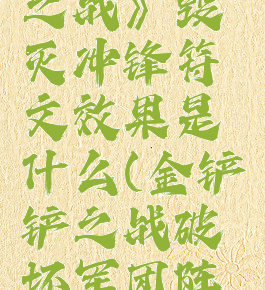 之战》毁
灭冲锋符
文效果是
什么(金铲
铲之战破
坏军团阵